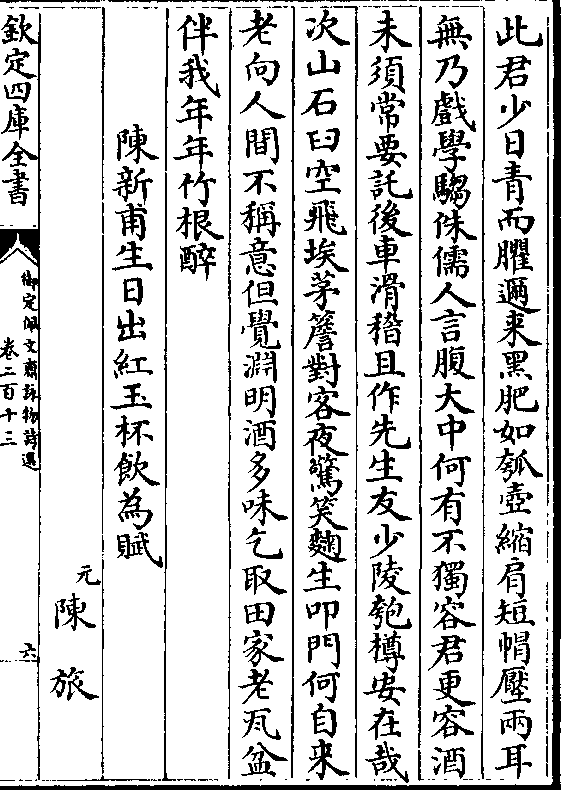 此君少日青而臞邇来黑肥如瓠壺縮肩短帽壓兩耳
無乃戲學騶侏儒人言腹大中何有不獨容君更容酒
未須常要託後車滑稽且作先生友少陵匏樽安在哉
次山石臼空飛埃茅簷對客夜驚笑麯生叩門何自来
老向人間不稱意但覺淵明酒多味乞取田家老瓦盆
伴我年年竹根醉
陳新甫生日出紅玉杯飲為賦
元 陳旅
欽定四庫全書
御定佩文齋詠物詩選
卷二百十三
六